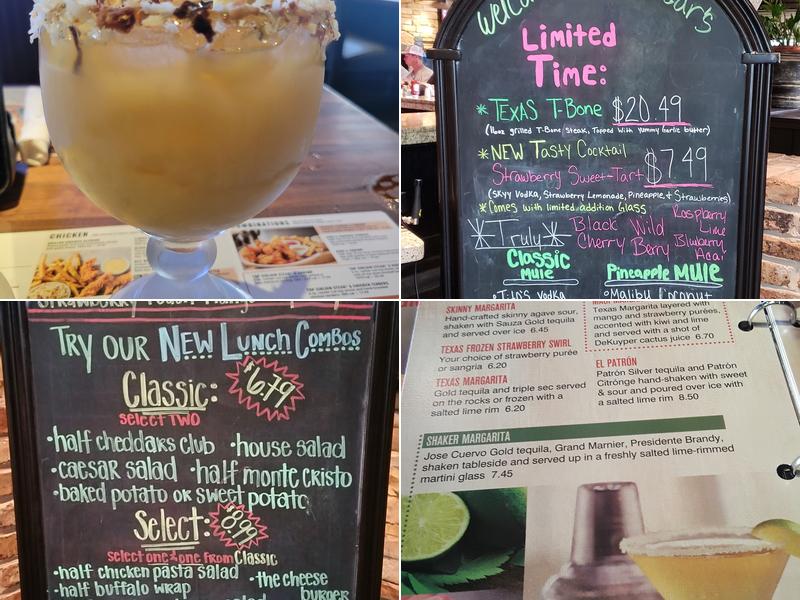 CHICKEN
COMBINATIONS
Limited
Time:
* TEXAS T-BONE $20.49
(16oz grilled T-Bone Steak, Topped with yummy garlic butter)
* NEW Tasty Cocktail
Strawberry Sweet-Tart $7.49
(SKYY Vodka, Strawberry Lemonade, Pineapple, & Strawberries)
* Comes with limited addition Glass
Truly
Black Cherry
Wild Berry
Raspberry Lime
Bluberry Acai
Classic MULE
Pineapple MULE
• Tito's Vodka
• Malibu Coconut
TRY OUR NEW LUNCH COMBOS
Classic: $6.79
select TWO
•half cheddars club •house salad
•caesar salad •half monte cristo
•baked potato or sweet potato
Select: $8.99
select one & one from Classic
•half chicken pasta salad •the cheese
•half buffalo wrap burger
SKINNY MARGARITA
Hand-crafted skinny agave sour,
shaken with Sauza Gold tequila
and served over ice 6.45
TEXAS FROZEN STRAWBERRY SWIRL
Your choice of strawberry purée
or sangria 6.20
TEXAS MARGARITA
Gold tequila and triple sec served
on the rocks or frozen with a
salted lime rim 6.20
Texas Margarita layered with
mango and strawberry purées,
accented with kiwi and lime
and served with a shot of
DeKuyper cactus juice 6.70
EL PATRÓN
Patrón Silver tequila and Patrón
Citrónge hand-shaken with sweet
& sour and poured over ice with
a salted lime rim 8.50
SHAKER MARGARITA
Jose Cuervo Gold tequila, Grand Marnier, Presidente Brandy,
shaken tableside and served up in a freshly salted lime-rimmed
martini glass 7.45